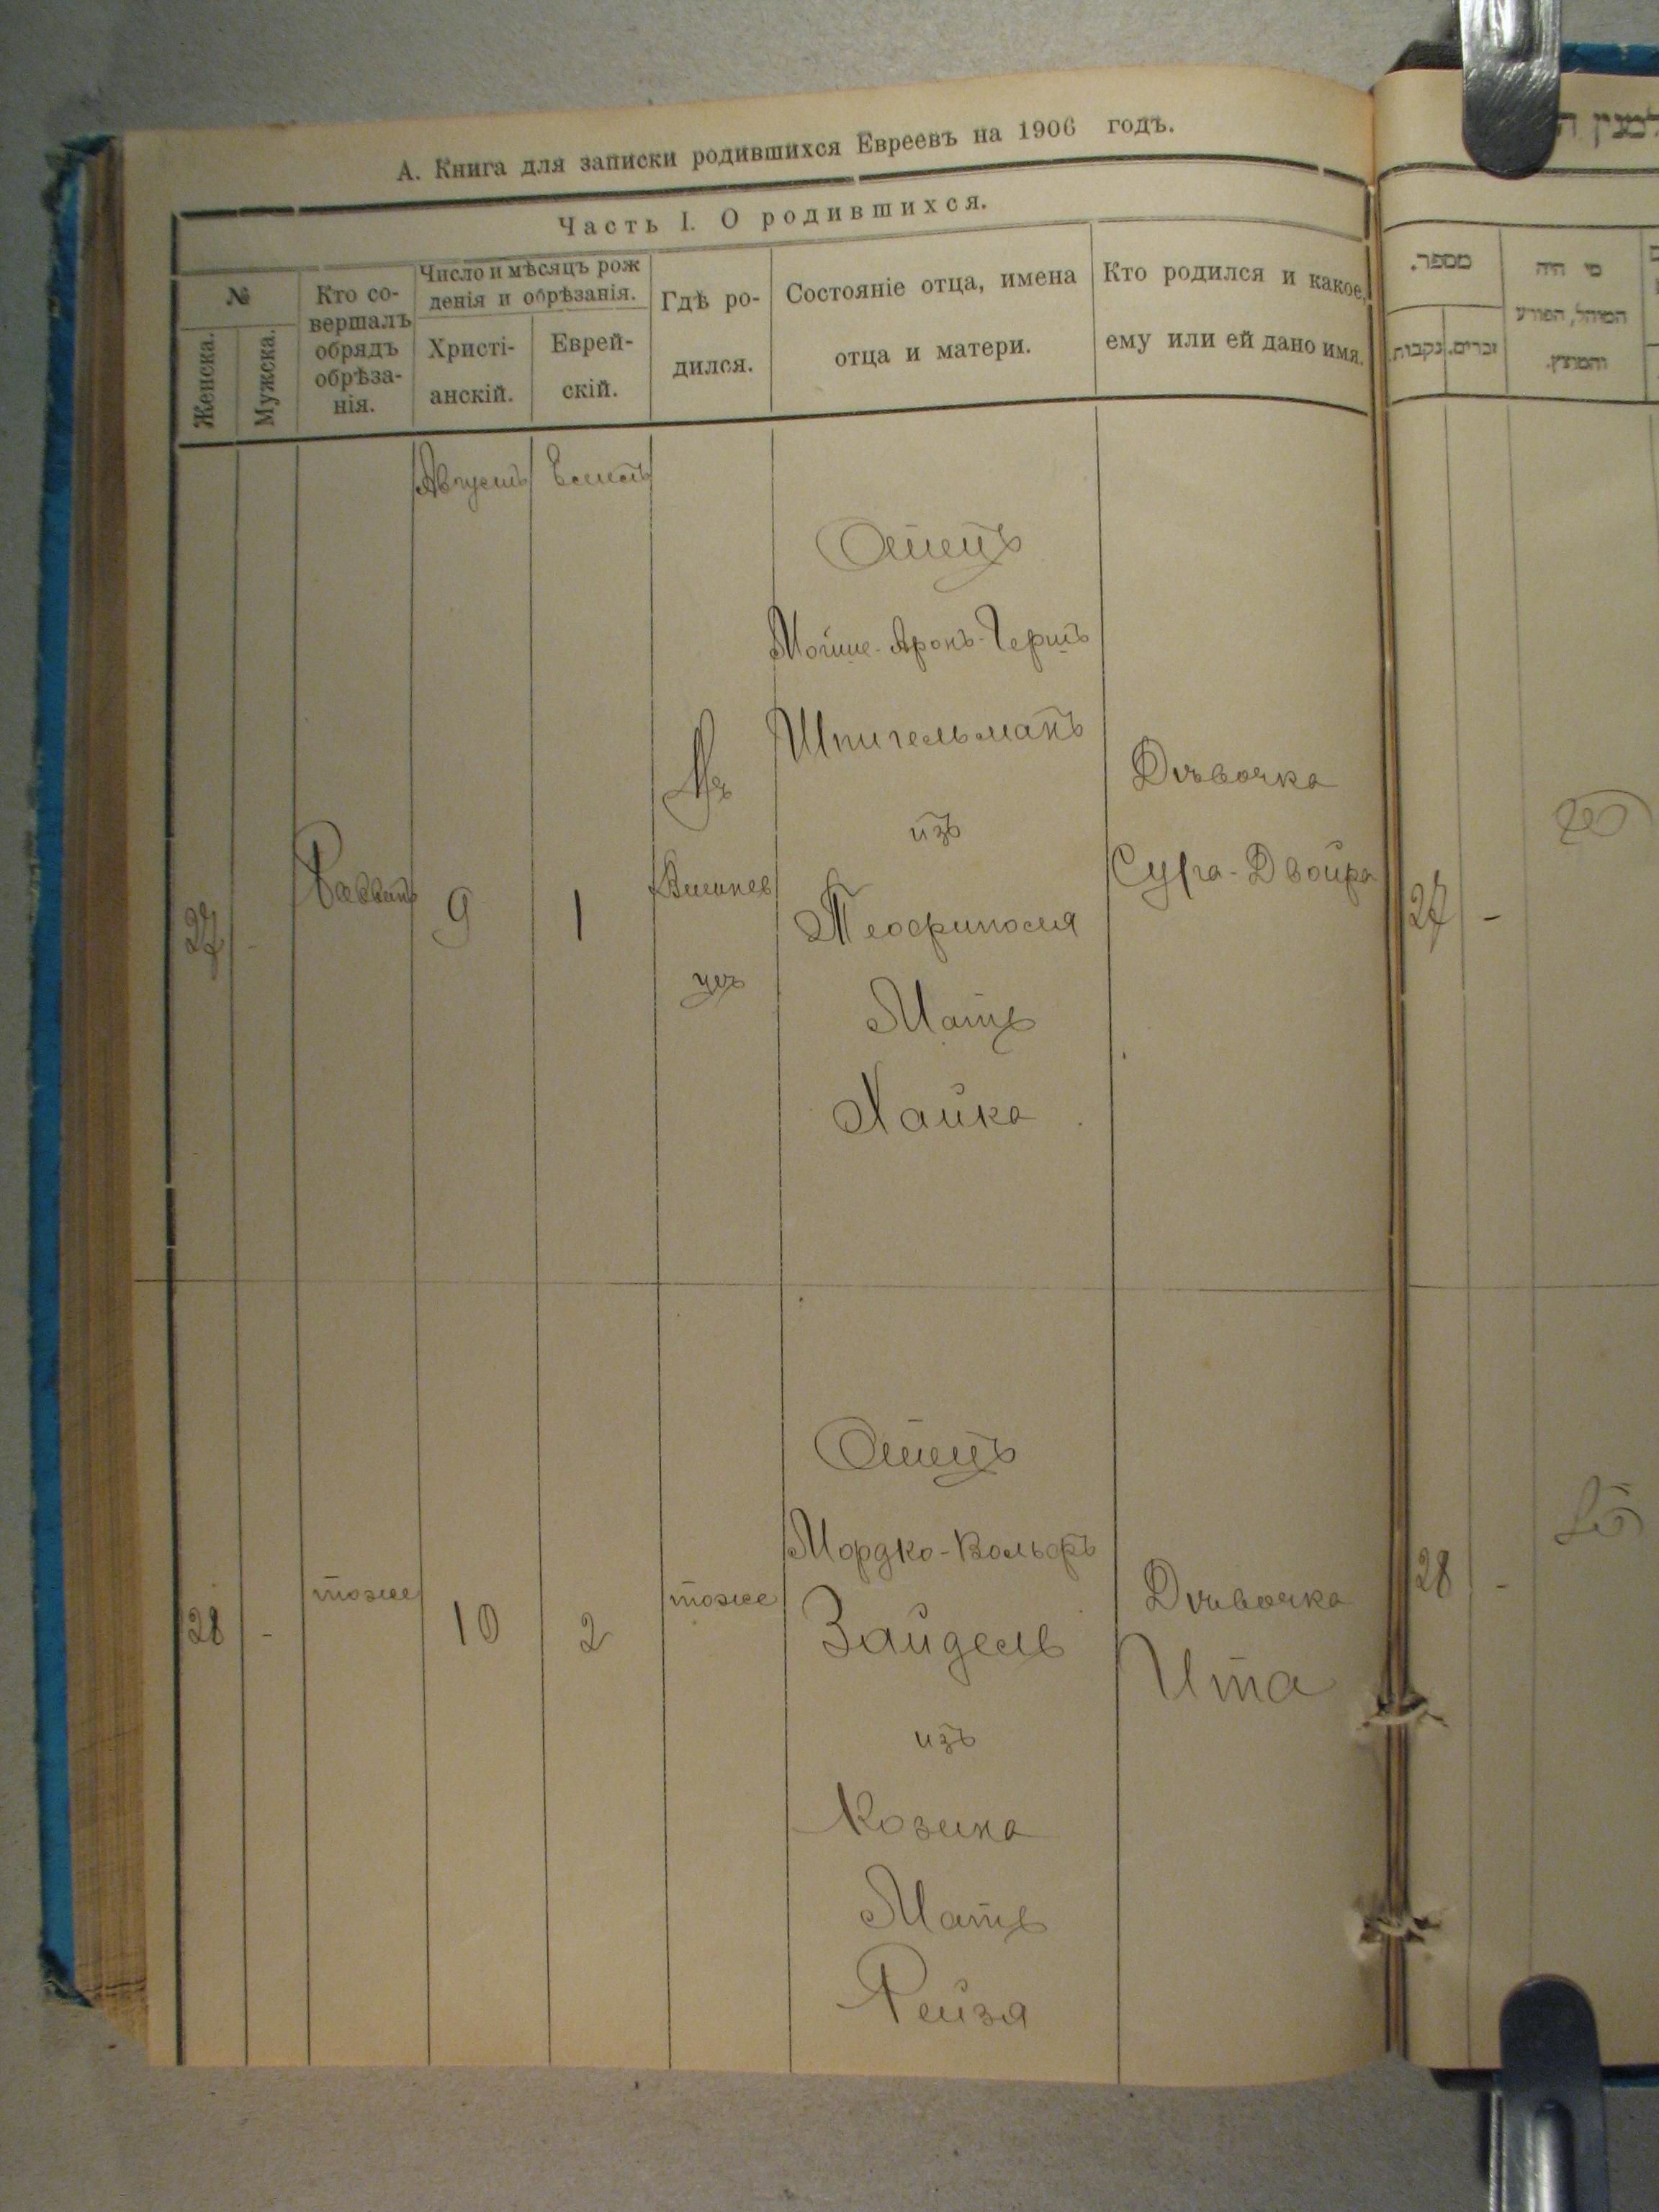 А. Книга для записки родившихся Евреевъ на 1906 годъ.
Часть I. О родившихся.
№
Женска.
Мужска.
Кто со-
вершалъ
обрядъ
обрѣза-
нія.
Число и мѣсяцъ рож
денія и обрѣзанія.
Христі-
анскій.
Еврей-
скій.
Гдѣ ро-
дился.
Состояніе отца, имена
отца и матери.
Кто родился и какое,
ему или ей дано имя.
Августъ
27
-
Раввинъ
9
1
Въ
Вишнев
цѣ
Отецъ
Мойше-Аронъ-Гершъ
Шпигельманъ
изъ
Теофиполя
Мать
Хайка
Дѣвочка
Сура-Двойра
28
-
тоже
10
2
тоже
Отецъ
Мордко-Вольфъ
Зайдель
изъ
Козина
Мать
Рейзя
Дѣвочка
Ита
מספר.
נקבות.
זכרים.
מי היה
המוהל, הפורע
והמוצץ.
27 -
28 -